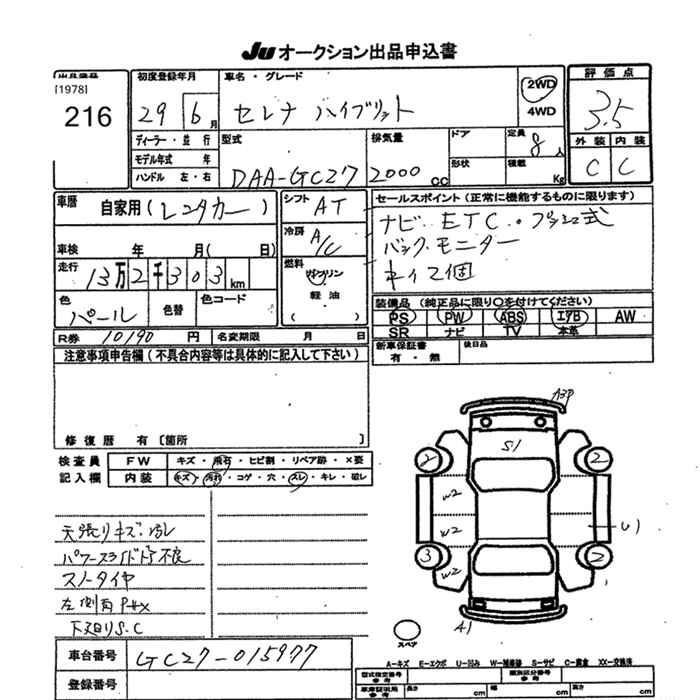 JU オークション出品申込書
[1978]
216
初度登録年月
29 6月
車名・グレード
セレナ ハイブリット
2WD
4WD
評価点
3.5
ディーラー・並行
モデル年式 年
ハンドル 左・右
型式
DAA-GC27
排気量
2000cc
ドア
形状
定員
8人
積載
Kg
外装 内装
C C
車歴
自家用(レンタカー)
シフト
AT
セールスポイント(正常に機能するものに限ります)
ナビ ETC・プッシュ式
バックモニター
キィ2個
車検 年 月( 日)
冷房
A/C
走行
13万2千303km
燃料
ガソリン
軽油
色
パール
色替
色コード
装備品(純正品に限り○を付けてください)
PS PW ABS エアB AW
SR ナビ TV 本革
R券 10190円
名変期限 月 日
新車保証書
有・無
後日品
注意事項申告欄(不具合内容等は具体的に記入して下さい)
修復歴 有[箇所 ]
検査員
記入欄
FW キズ・飛石・ヒビ割・リペア跡・X要
内装 キズ・汚れ・コゲ・穴・スレ・キレ・破レ
天張りキズ・汚レ
パワースライドドア不良
スノータイヤ
下廻りS.C
A3P
S1
2 2
W2
W2
U1
3 W2 2
A1
スペア
A-キズ E-エクボ U-凹み W-補修跡 S-サビ C-腐食 XX-交換済
車台番号 GC27-015977
登録番号
型式指定番号
参考
類別区分番号
参考
車庫証明用
参考
長さ cm
幅 cm
高さ cm